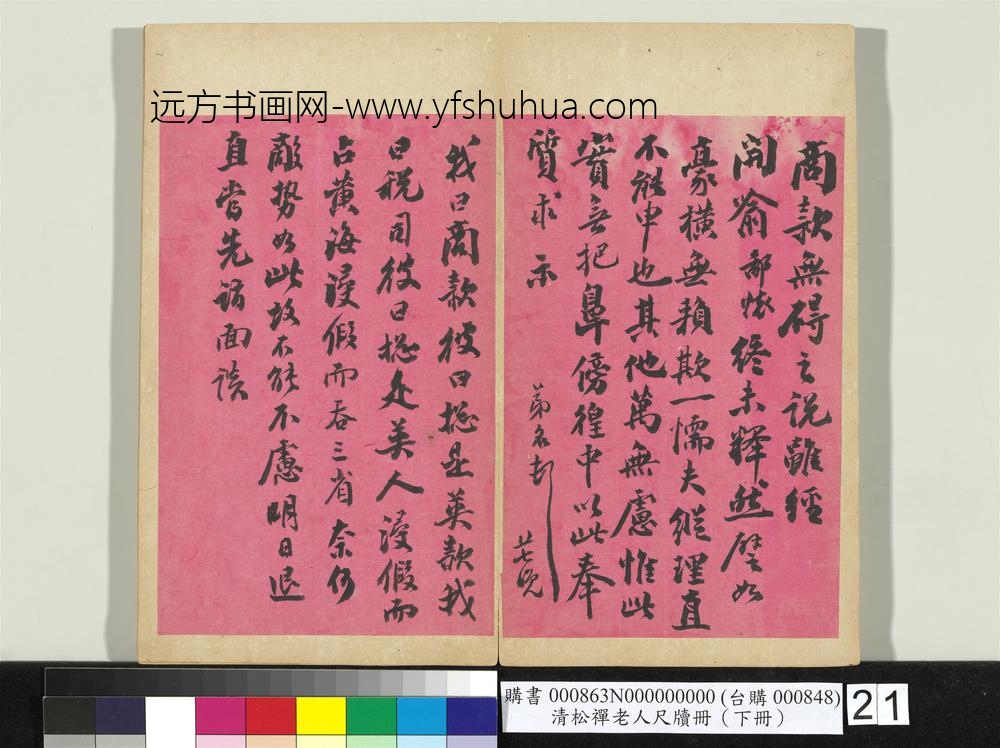 远方书画网-www.yfshuhua.com
商款無碍之說雖經
開喻鄙懷終未釋然譬如
豪横無賴欺一懦夫縱理直
不能申也其他萬無慮惟此
實無把鼻傍徨中以此奉
質求示
弟名頓
廿七夕
我曰商款彼曰總是英款我
曰稅司彼曰總是英人浸假而
占黃海浸假而吞三省奈何
敵勢如此故不能不慮明日退
直當先詣面談
購書 000863N000000000 (台購 000848)
清松禪老人尺牘冊（下冊）
21